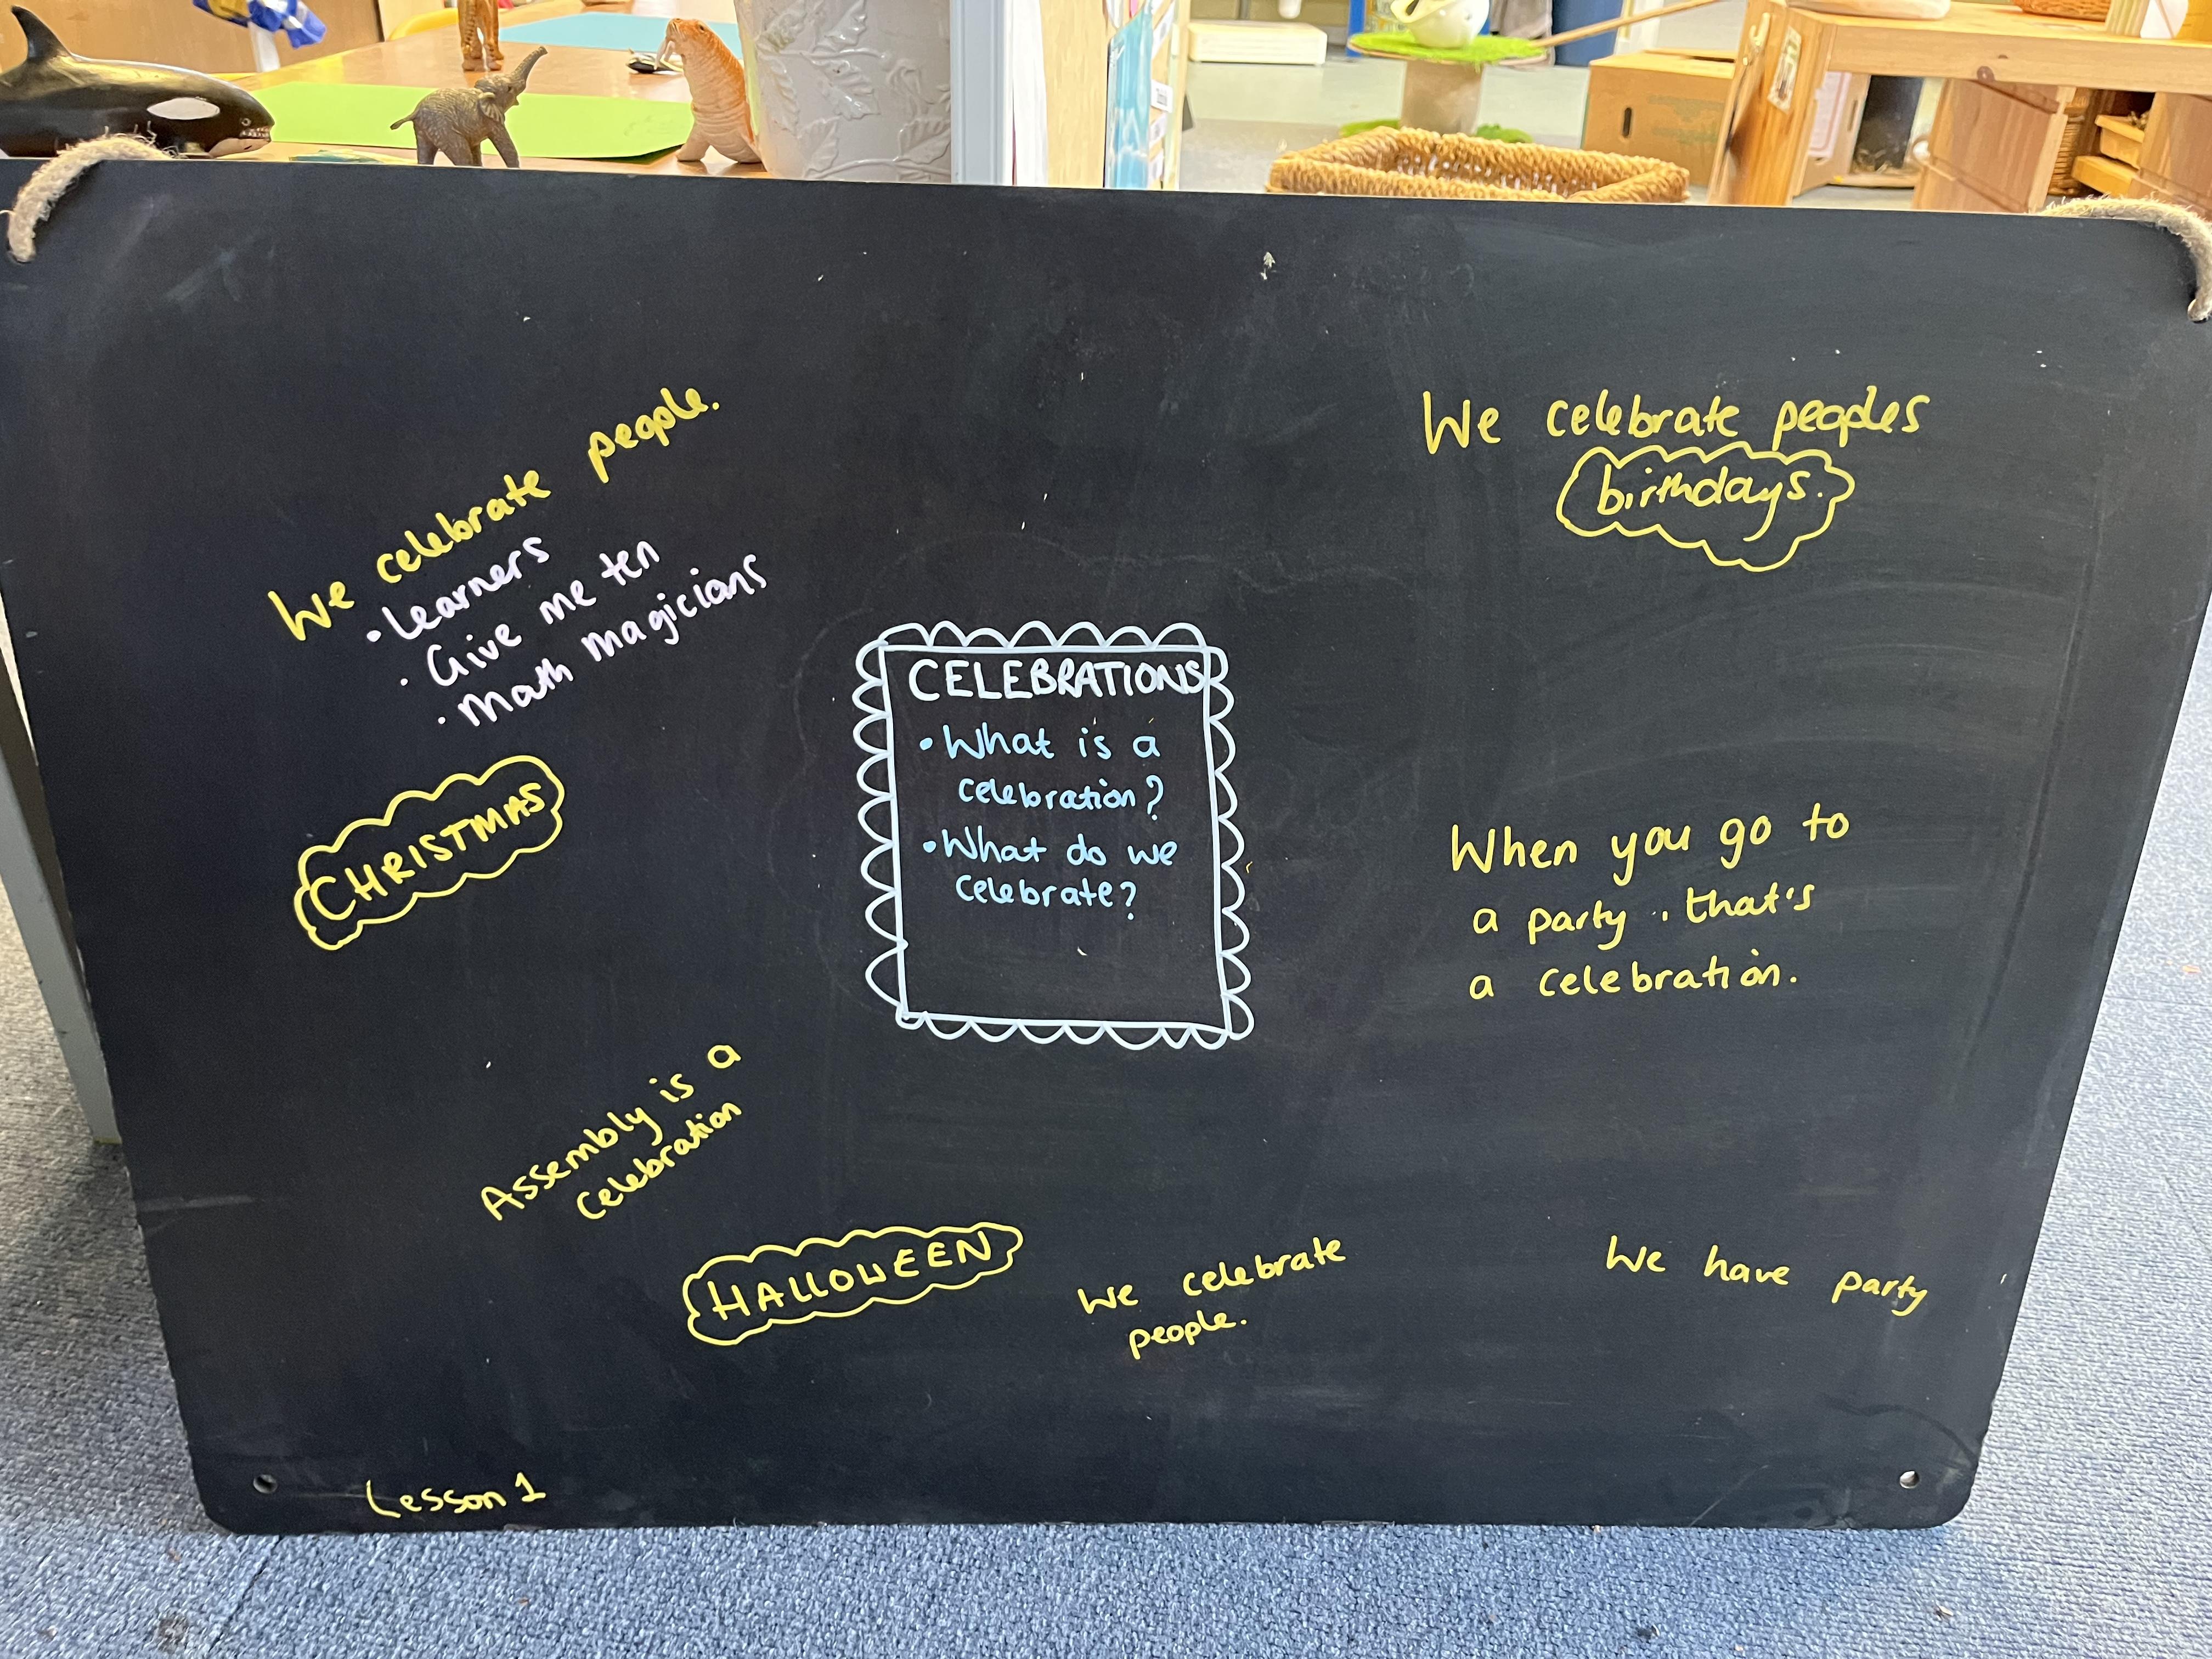 We celebrate people.
• Learners
• Give me ten
• Math magicians
We celebrate peoples
birthdays.
CELEBRATIONS
• What is a
celebration?
• What do we
celebrate?
CHRISTMAS
When you go to
a party, that's
a celebration.
Assembly is a
celebration
HALLOWEEN
We celebrate
people.
We have party
Lesson 1